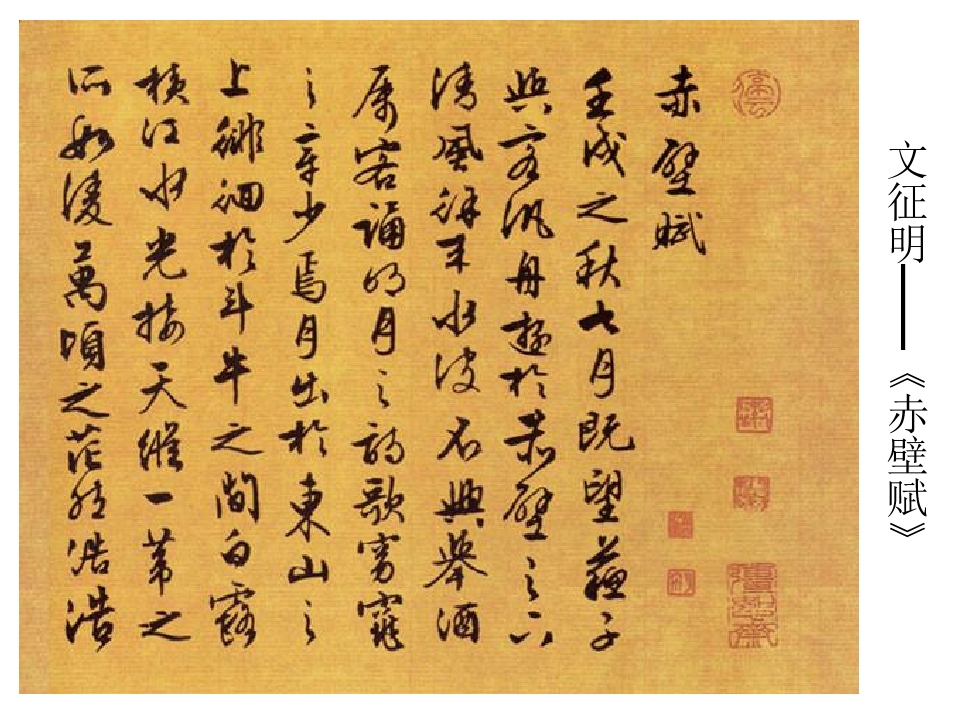 文征明——《赤壁赋》
赤壁賦
壬戌之秋七月既望蘇子
與客汎舟遊於赤壁之下
清風徐来水波不興舉酒
属客誦明月之詩歌窈窕
之章少焉月出於東山之
上徘徊於斗牛之間白露
横江水光接天縱一葦之
所如淩萬頃之茫然浩浩